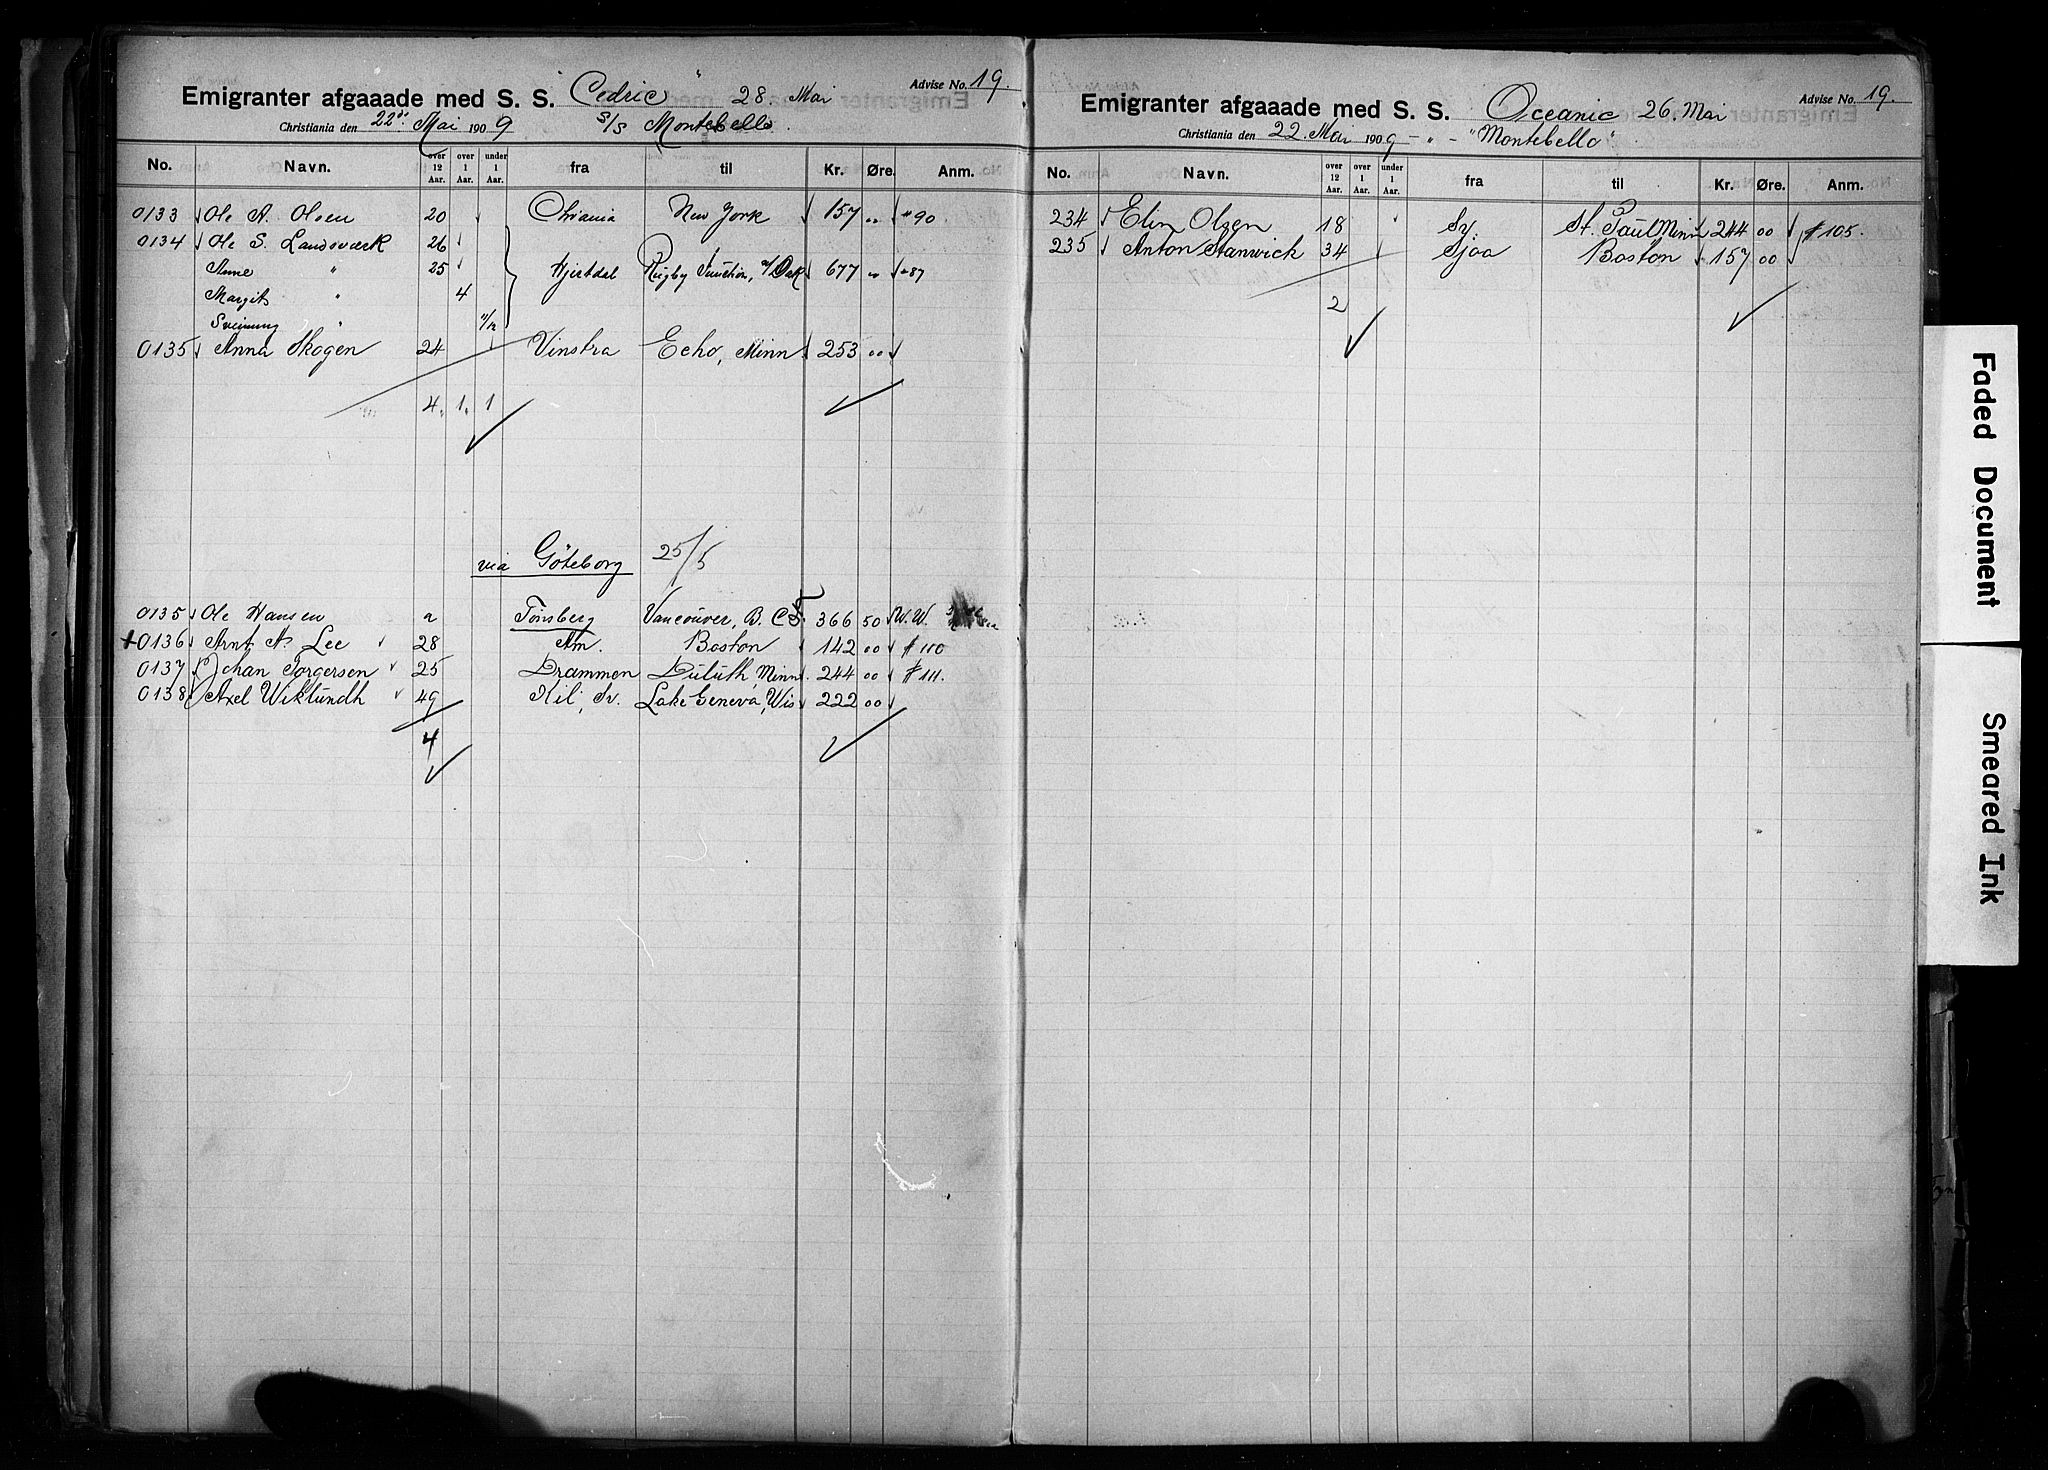 Emigranter afgaaade med S. S. "Cedric" 28. Mai Advise No. 19.
Christiania den 22de Mai 1909 S/S Montebello.
No. Navn. over 12 Aar. over 1 Aar. under 1 Aar. fra til Kr. Øre. Anm.
0133 Ole A. Olsen 20 Chrania New York 157 " #90
0134 Ole S. Landsværk 26
Anne " 25 Hjertdal Rugby Junction, N/Dak 677 " #87
Margit " 4
Sveinung " 11/12
0135 Anna Skogen 24 Vinstra Echo, Minn 253 00
4. 1. 1
via Göteborg 25/5
0135 Ole Hansen a Tønsberg Vancouver, B. C. 366 50 W. W.
+0136 Arnt A. Lee 28 Am. Boston 142 00 #100
0137 Johan Torgersen 25 Drammen Duluth Minn. 244 00 #111.
0138 Axel Wiklundh 49 Kil, Sv. Lake Geneva, Wis 222 00
4
Emigranter afgaaade med S. S. Oceanic 26. Mai Advise No. 19.
Christiania den 22. Mai 1909 - " - "Montebello"
No. Navn. over 12 Aar. over 1 Aar. under 1 Aar. fra til Kr. Øre. Anm.
234 Elin Olsen 18 Sv. St. Paul Minn 244 00 #105.
235 Anton Stanwick 34 Sjoa Boston 157 00
2
Faded Document
Smeared Ink